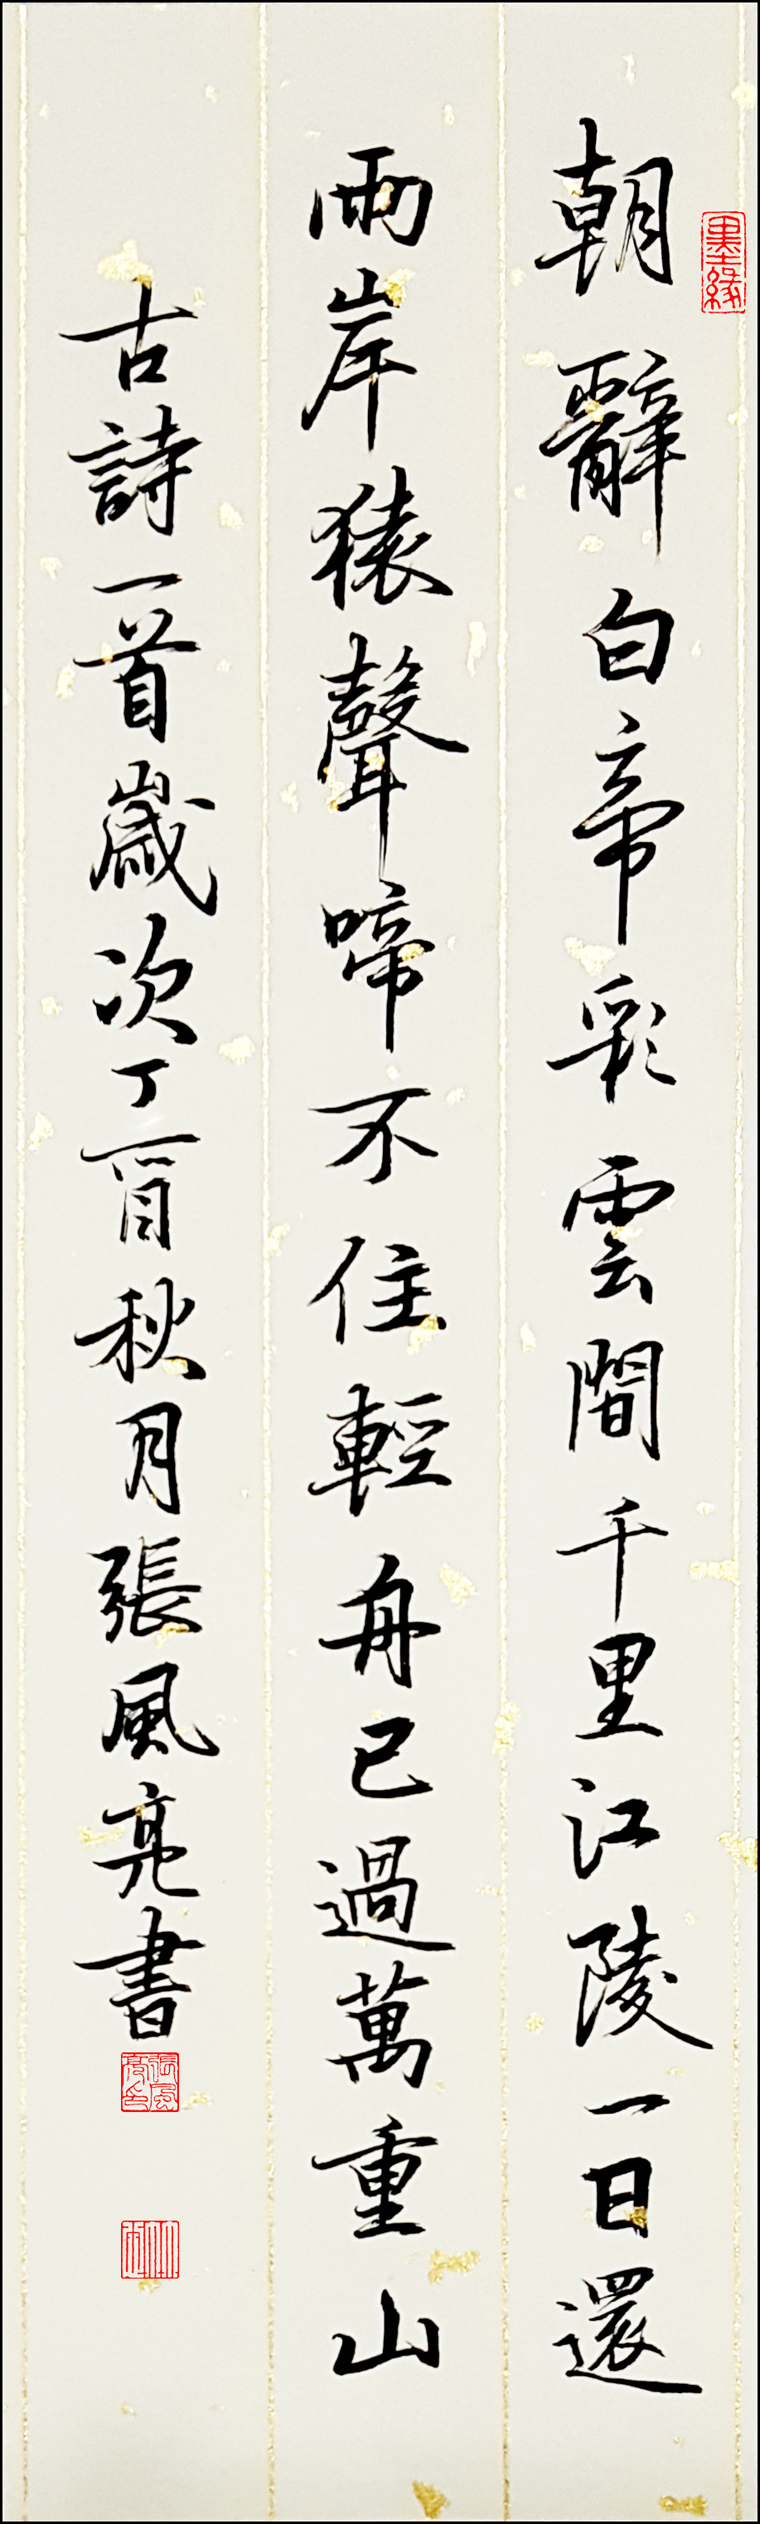 墨緣
朝辭白帝彩雲間千里江陵一日還
兩岸猿聲啼不住輕舟已過萬重山
古詩一首歲次丁酉秋月張風亮書
張風亮印